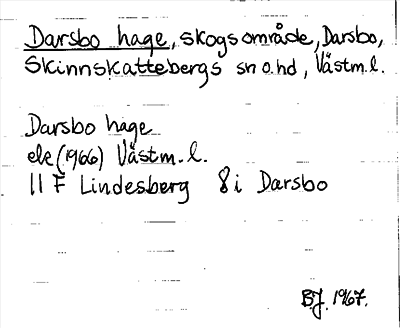 Darsbo hage, skogsområde, Darsbo,
Skinnskattebergs sn o. hd, Västm. l.
Darsbo hage
ek (1966) Västm. l.
11 F Lindesberg 8 i Darsbo
BJ. 1967.